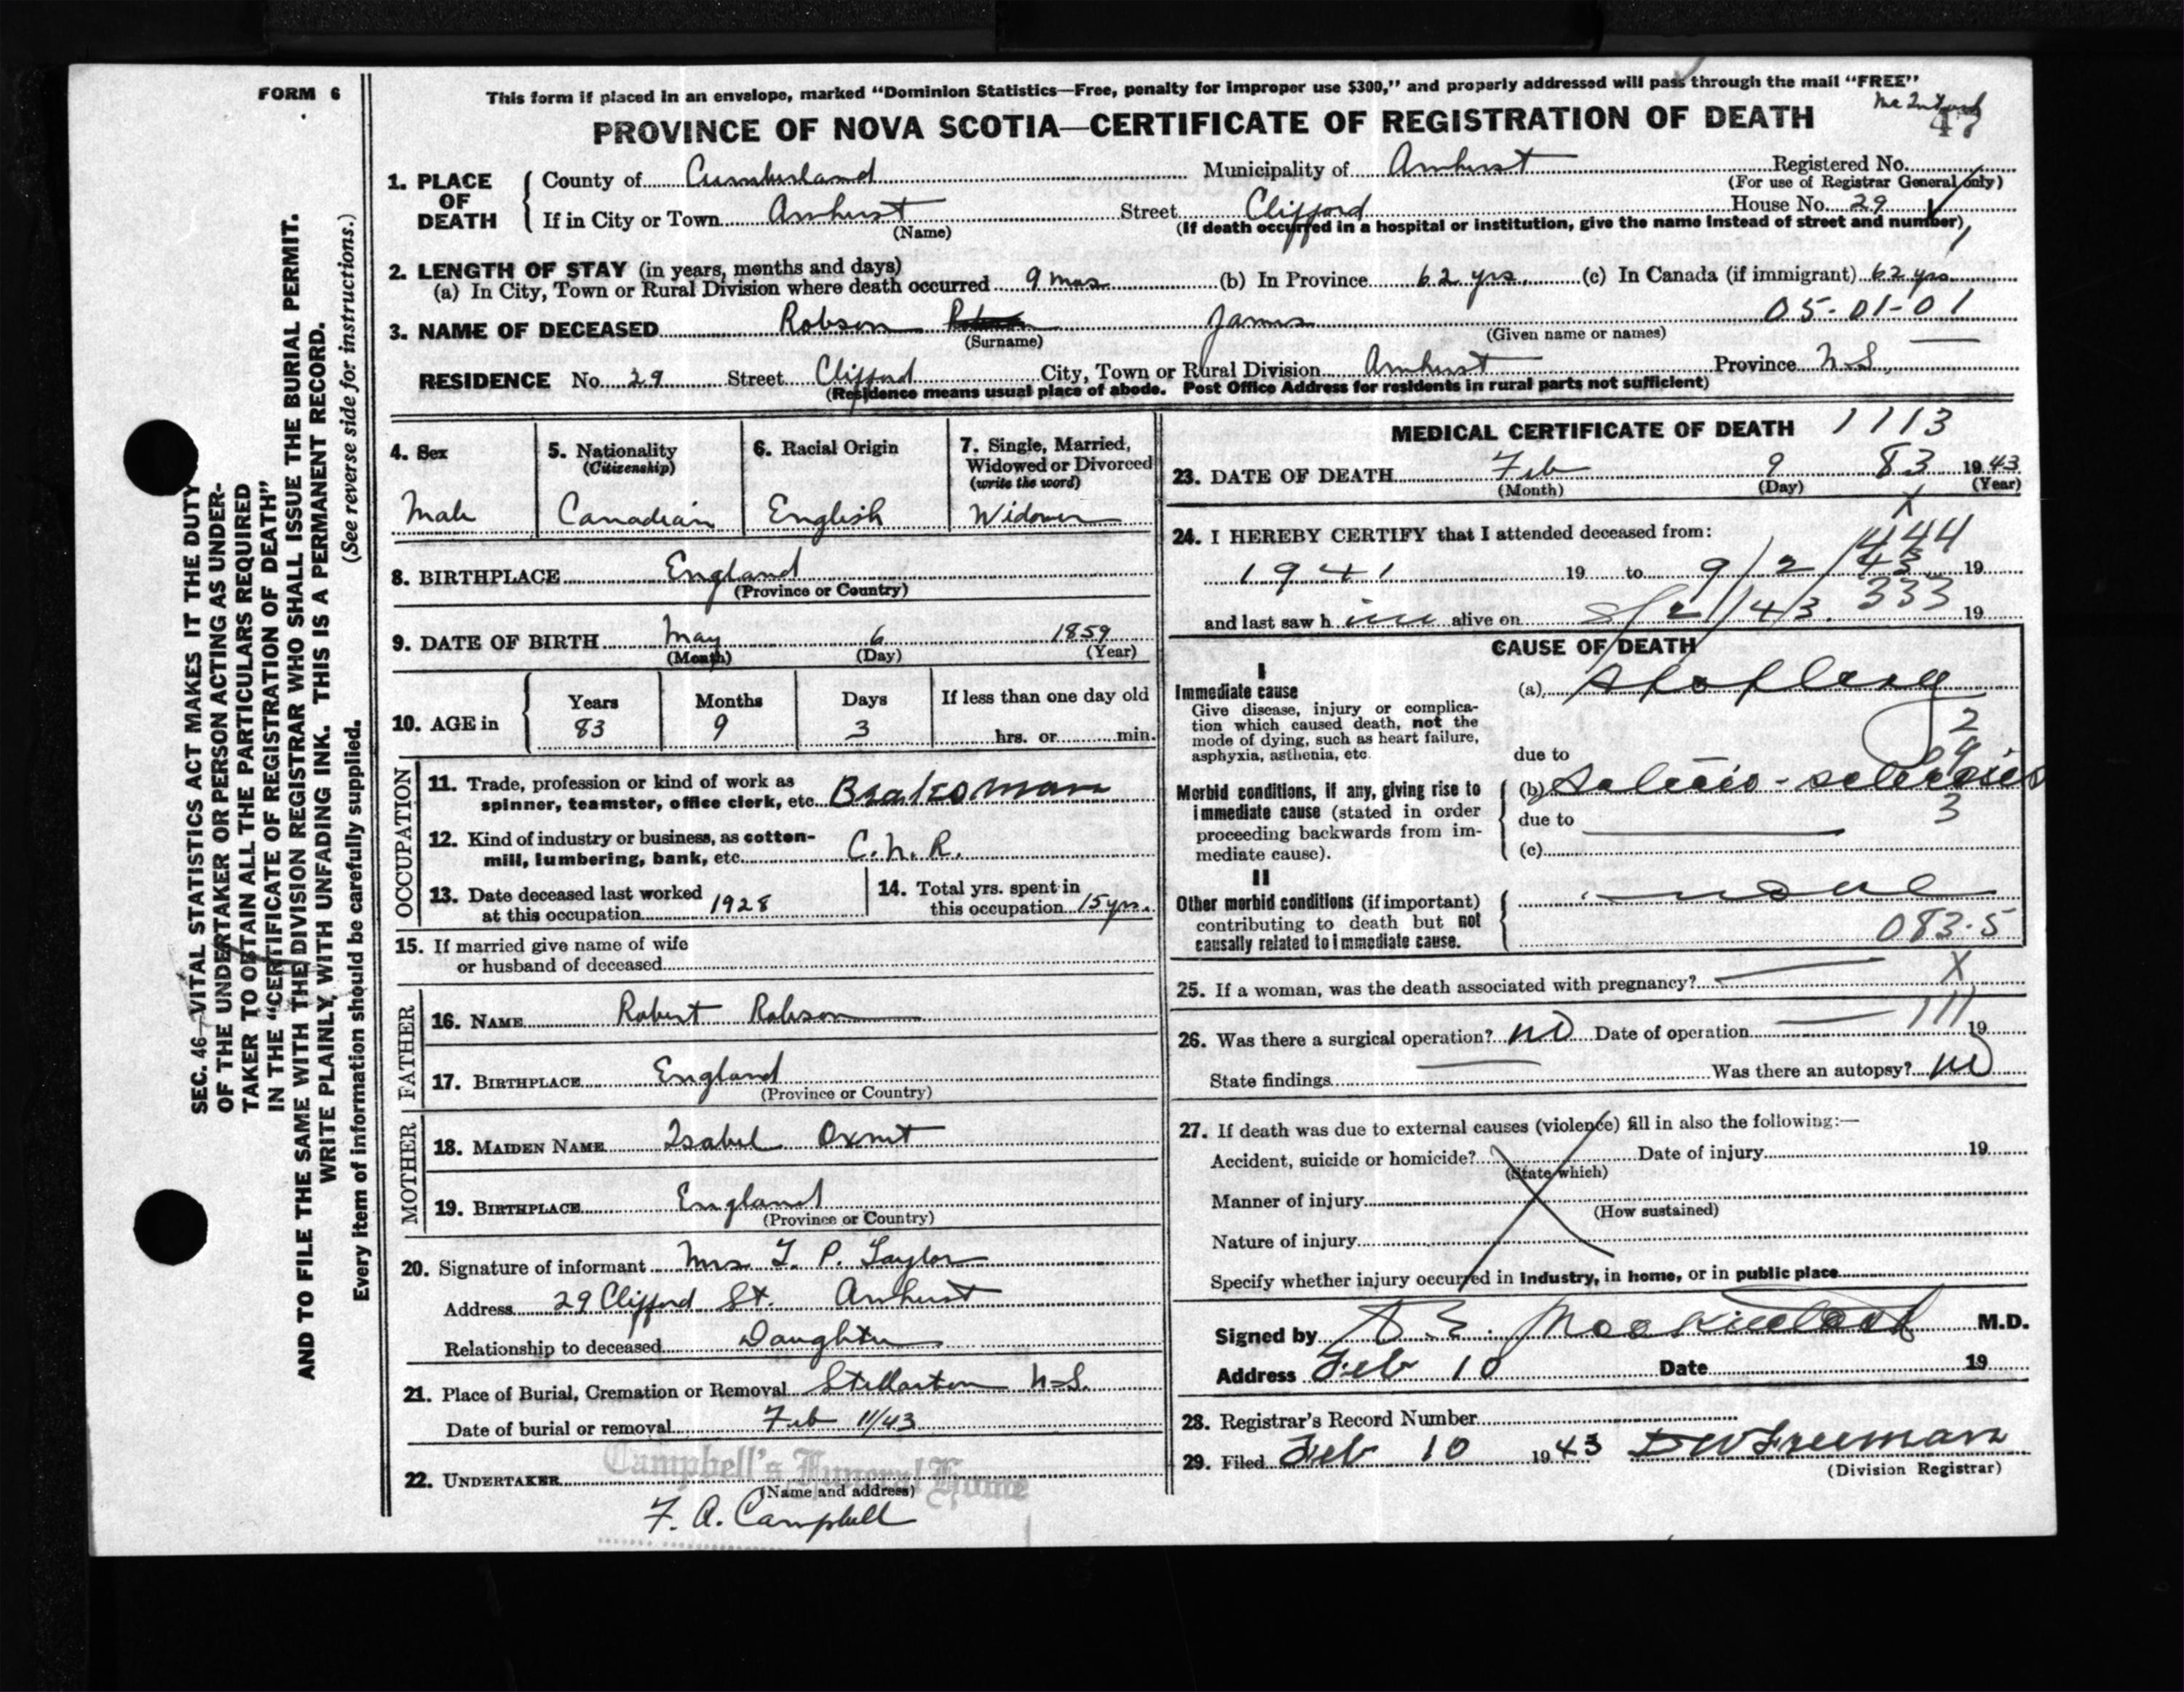 FORM 6
This form if placed in an envelope, marked "Dominion Statistics—Free, penalty for improper use $300," and properly addressed will pass through the mail "FREE"
47
PROVINCE OF NOVA SCOTIA—CERTIFICATE OF REGISTRATION OF DEATH
1. PLACE OF DEATH
County of Cumberland Municipality of Amherst Registered No.
(For use of Registrar General only)
If in City or Town Amherst Street Clifford House No. 29
(Name) (If death occurred in a hospital or institution, give the name instead of street and number)
2. LENGTH OF STAY (in years, months and days)
(a) In City, Town or Rural Division where death occurred 9 mos. (b) In Province 62 yrs. (c) In Canada (if immigrant) 62 yrs.
05-01-01
3. NAME OF DECEASED Robson James
(Surname) (Given name or names)
RESIDENCE No. 29 Street Clifford City, Town or Rural Division Amherst Province N.S.
(Residence means usual place of abode. Post Office Address for residents in rural parts not sufficient)
4. Sex
Male
5. Nationality
(Citizenship)
Canadian
6. Racial Origin
English
7. Single, Married,
Widowed or Divorced
(write the word)
Widower
8. BIRTHPLACE England
(Province or Country)
9. DATE OF BIRTH May 6 1859
(Month) (Day) (Year)
10. AGE in
Years Months Days If less than one day old
83 9 3 hrs. or min.
OCCUPATION
11. Trade, profession or kind of work as
spinner, teamster, office clerk, etc. Brakesman
12. Kind of industry or business, as cotton-
mill, lumbering, bank, etc. C.N.R.
13. Date deceased last worked
at this occupation 1928
14. Total yrs. spent in
this occupation 15 yrs.
15. If married give name of wife
or husband of deceased
FATHER
16. NAME Robert Robson
17. BIRTHPLACE England
(Province or Country)
MOTHER
18. MAIDEN NAME Isabel
19. BIRTHPLACE England
(Province or Country)
20. Signature of informant Mrs. T. P. Taylor
Address 29 Clifford St. Amherst
Relationship to deceased Daughter
21. Place of Burial, Cremation or Removal Stellarton N.S.
Date of burial or removal Feb 11/43
22. UNDERTAKER Campbell's Funeral Home
(Name and address)
F. A. Campbell
MEDICAL CERTIFICATE OF DEATH 1113
23. DATE OF DEATH Feb 9 83 1943
(Month) (Day) (Year)
X
444
24. I HEREBY CERTIFY that I attended deceased from:
1941 19 to 9/2/43 19
333
and last saw h im alive on 8/2/43. 19
CAUSE OF DEATH
I
Immediate cause
Give disease, injury or complica-
tion which caused death, not the
mode of dying, such as heart failure,
asphyxia, asthenia, etc.
(a) Apoplexy
2
9
3
due to
Morbid conditions, if any, giving rise to
immediate cause (stated in order
proceeding backwards from im-
mediate cause).
(b)
due to
(c)
II
Other morbid conditions (if important)
contributing to death but not
causally related to immediate cause.
none
083.5
25. If a woman, was the death associated with pregnancy? X
111
26. Was there a surgical operation? no Date of operation 19
State findings Was there an autopsy? no
27. If death was due to external causes (violence) fill in also the following:—
Accident, suicide or homicide? Date of injury 19
(State which)
Manner of injury
(How sustained)
Nature of injury
Specify whether injury occurred in industry, in home, or in public place
Signed by M.D.
Address Feb 10 Date 19
28. Registrar's Record Number
29. Filed Feb 10 1943 D W Freeman
(Division Registrar)
SEC. 46—VITAL STATISTICS ACT MAKES IT THE DUTY
OF THE UNDERTAKER OR PERSON ACTING AS UNDER-
TAKER TO OBTAIN ALL THE PARTICULARS REQUIRED
IN THE "CERTIFICATE OF REGISTRATION OF DEATH"
AND TO FILE THE SAME WITH THE DIVISION REGISTRAR WHO SHALL ISSUE THE BURIAL PERMIT.
WRITE PLAINLY, WITH UNFADING INK. THIS IS A PERMANENT RECORD.
(See reverse side for instructions.)
Every item of information should be carefully supplied.